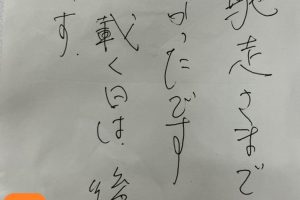 馳走さまで
かったです
載く日は
す